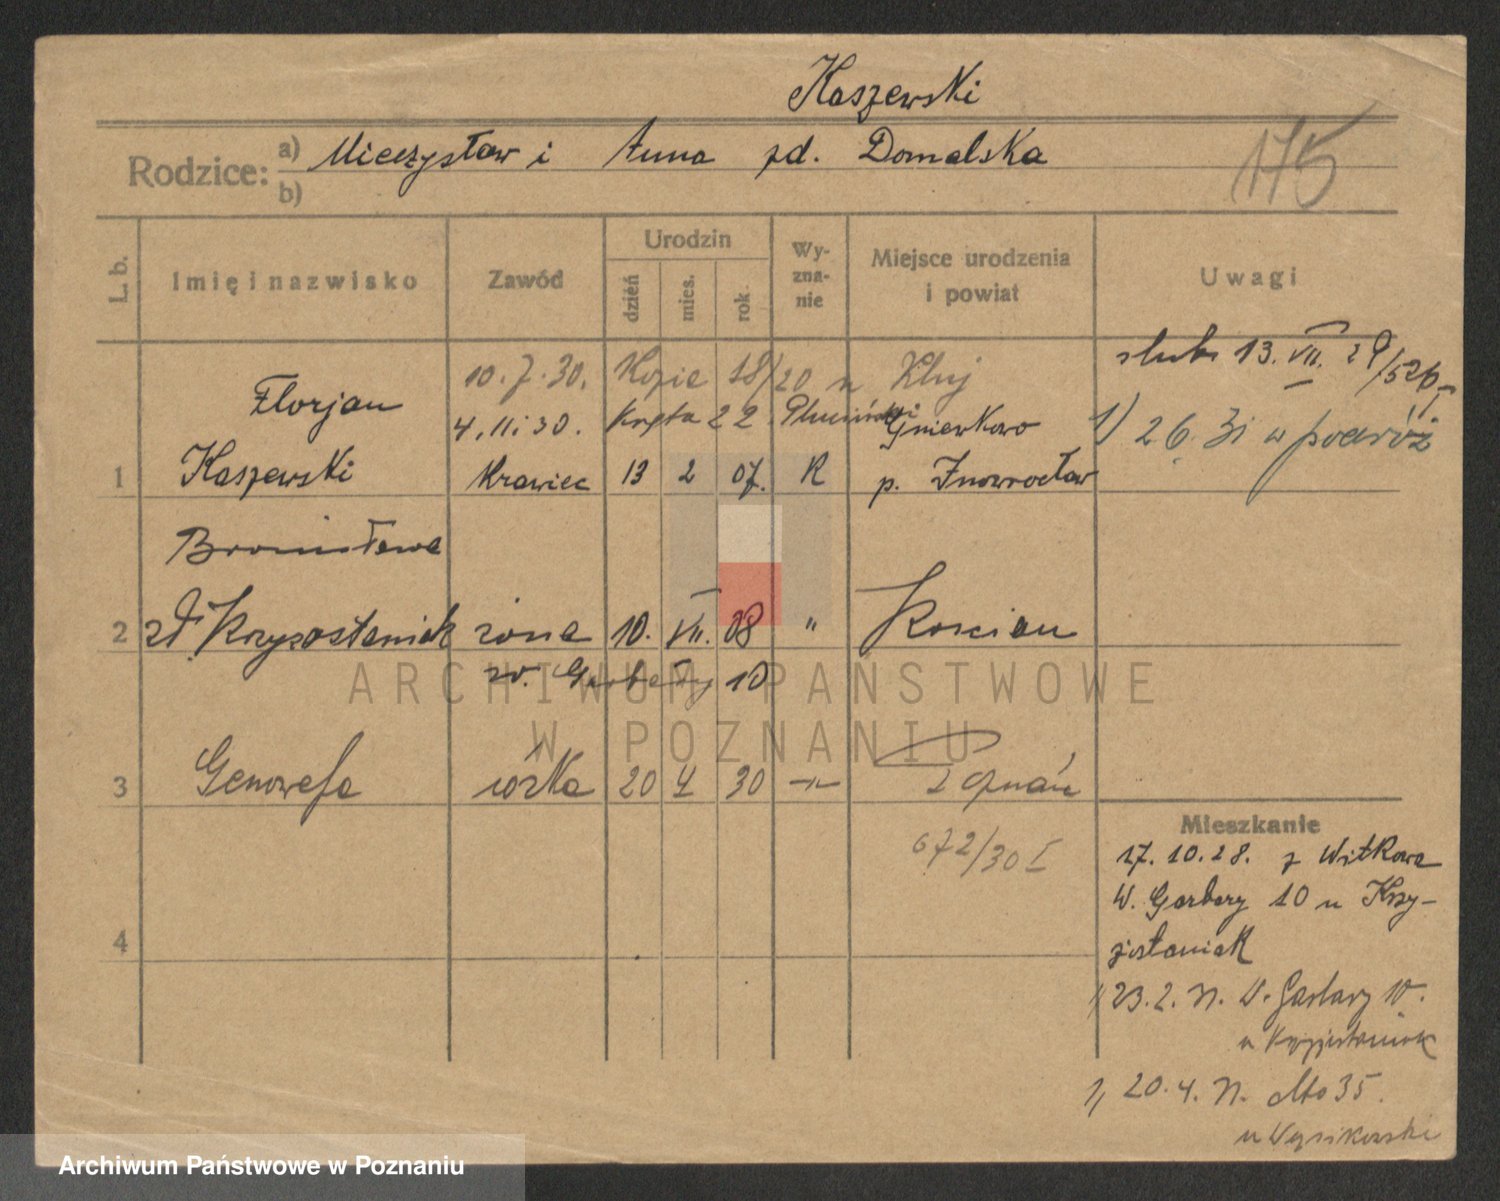 Kaszewski
Rodzice: a) Mieczysław i Anna zd. Domalska
b)
175
L. b.
Imię i nazwisko
Zawód
Urodzin
dzień
mies.
rok.
Wy-
zna-
nie
Miejsce urodzenia
i powiat
Uwagi
ślub 13. VII. 29/526
10.7.30. Kozie 18/20 u Kluj
Florjan 4.11.30. Kręta 22
Gniewkowo
1) 26. 31 w podróż
1 Kaszewski krawiec 13 2 07. R p. Inowrocław
Bronisława
2 zd. Krzyżostaniak żona 10. VII. 08 " Kościan
W. Garbary 10
3 Genowefa córka 20 4 30 -"- Poznań
672/30 I
4
Mieszkanie
17.10.28. z Witkowa
W. Garbary 10 u Krzy-
żostaniak
1) 23.2.31. W. Garbary 10.
u Krzyżostaniak
1) 20.4.31. 35.
ARCHIWUM PAŃSTWOWE
W POZNANIU
Archiwum Państwowe w Poznaniu